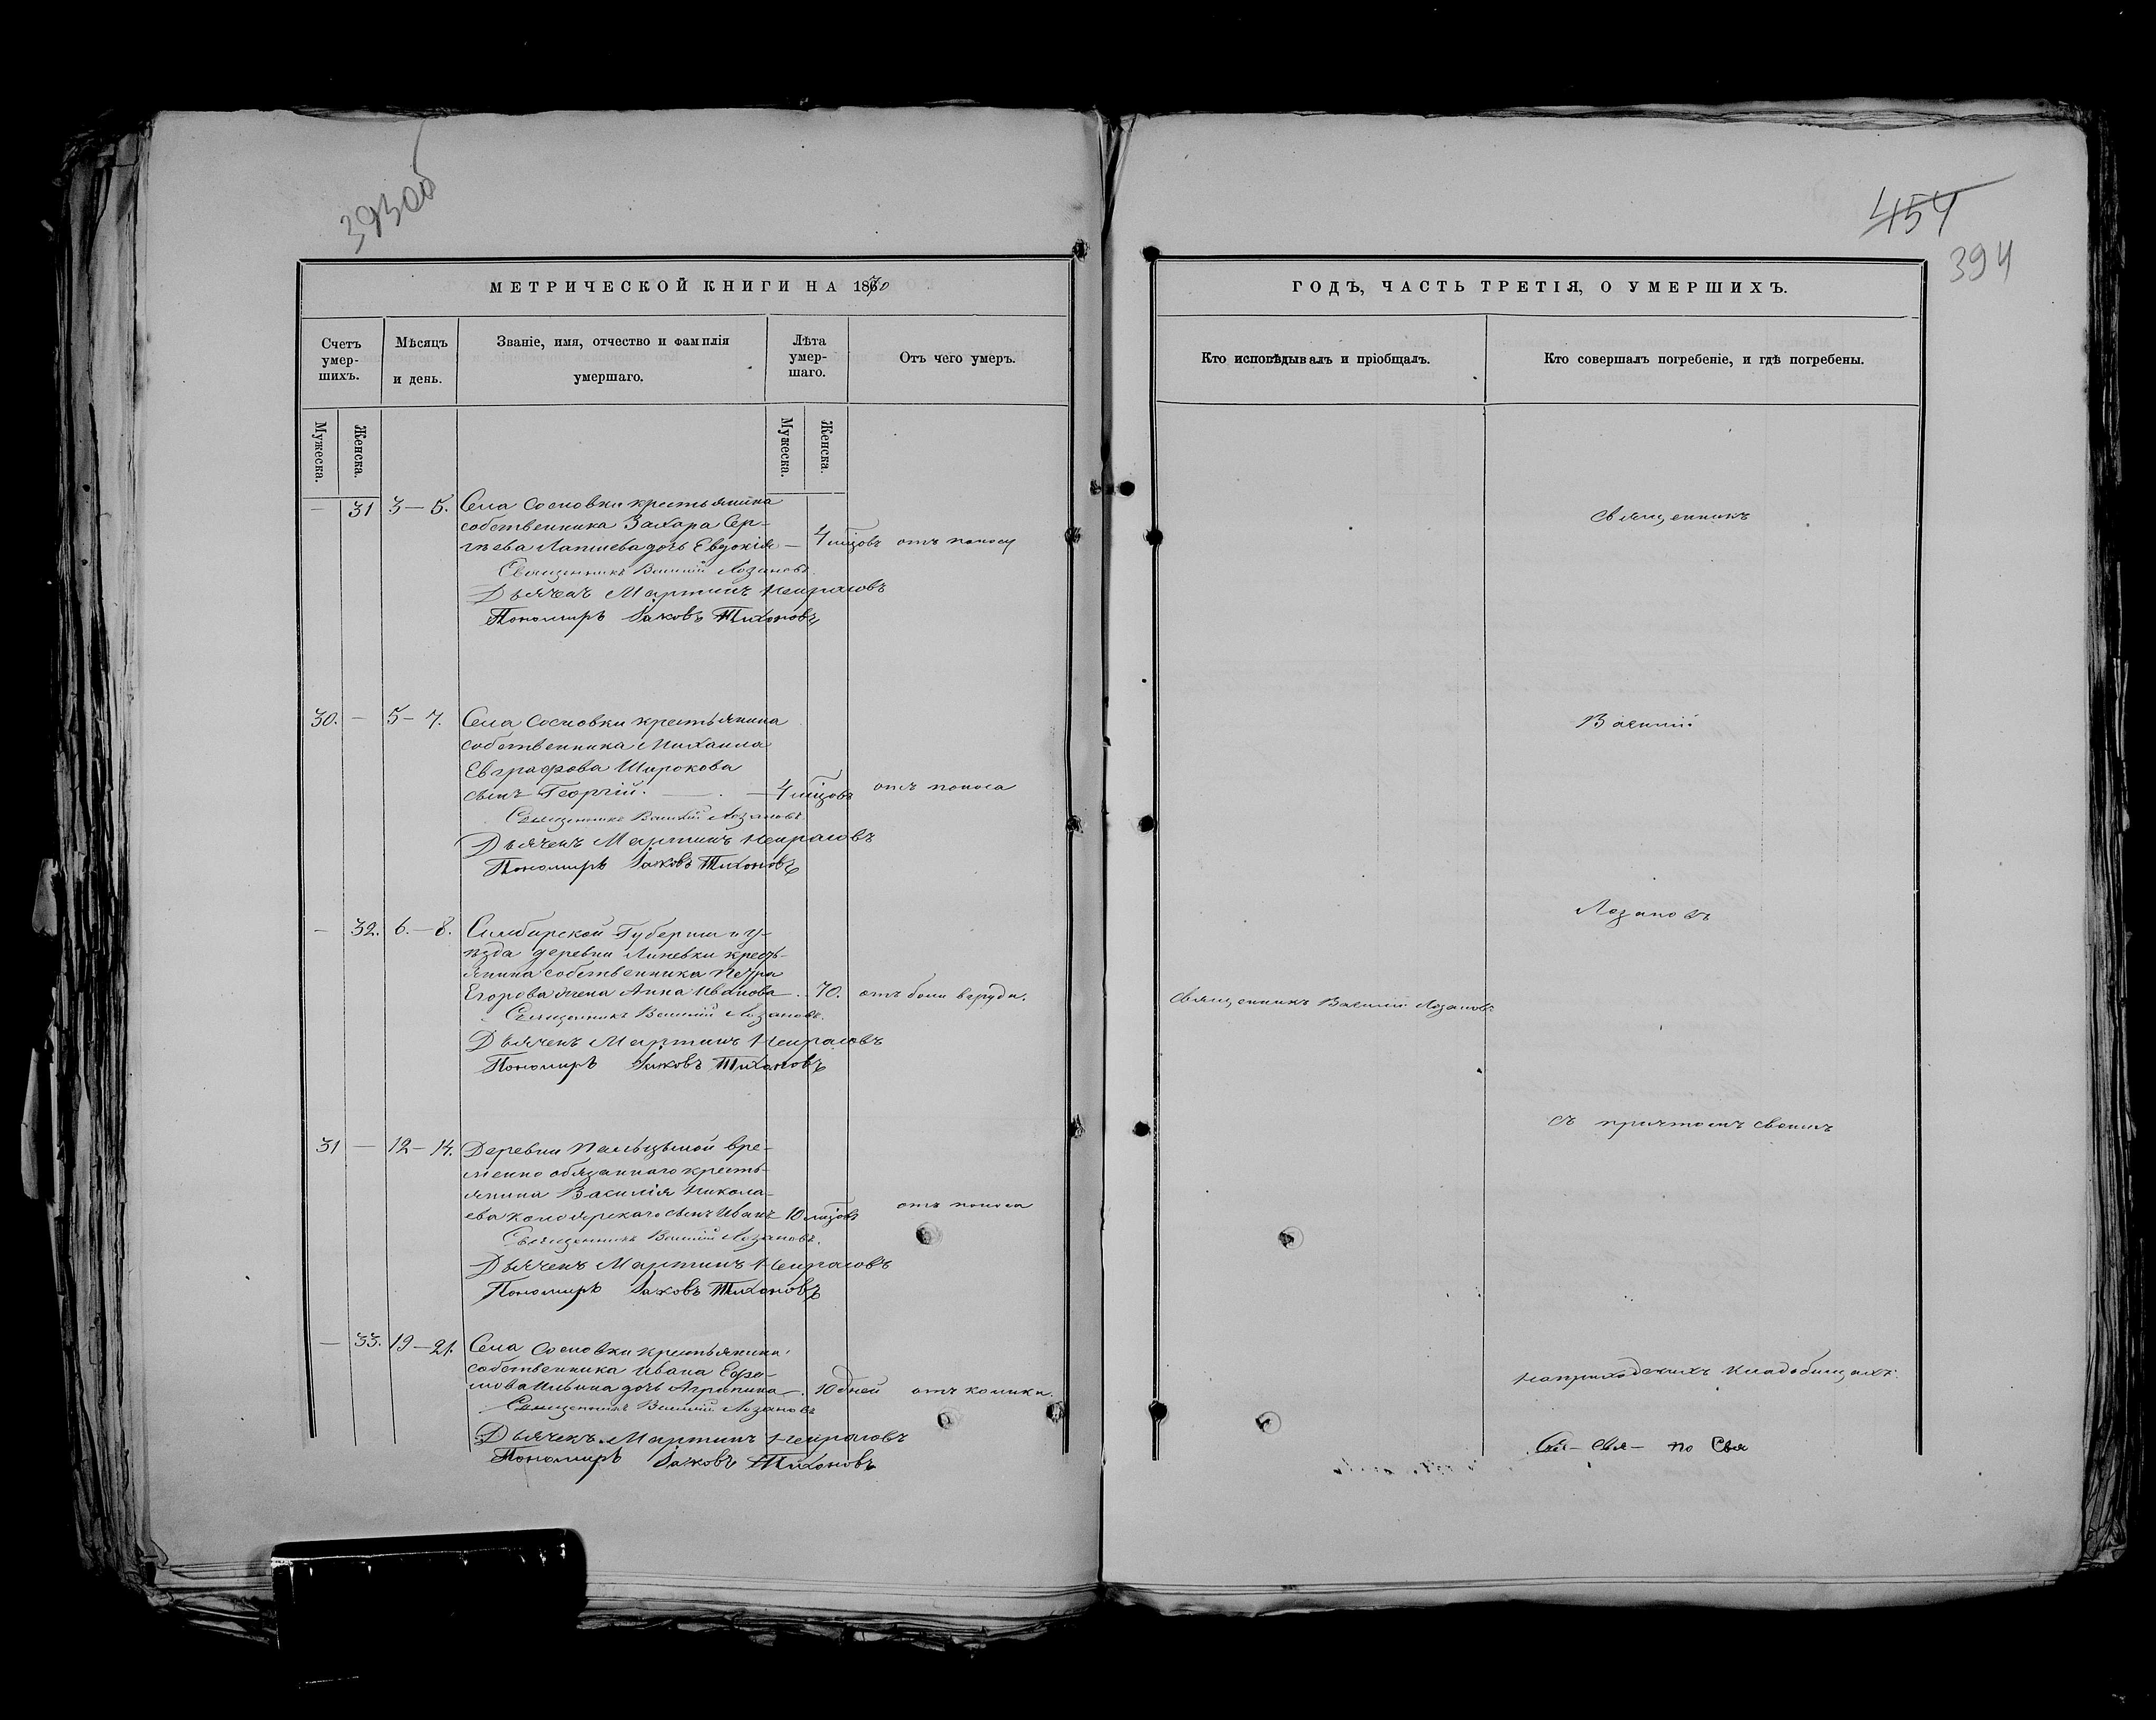 393об
МЕТРИЧЕСКОЙ КНИГИ НА 1870
Счетъ умер-шихъ.
Мѣсяцъ и день.
Званіе, имя, отчество и фамилія умершаго.
Лѣта умер-шаго.
Отъ чего умеръ.
Мужеска.
Женска.
Мужеска.
Женска.
— 31 3—5. Села Сосновки крестьянина
собственника Захара Сер-
гѣева Лапшева дочь Евдокія — 4 мѣцовъ отъ поносу
Священникъ Василій Лозановъ.
Дьячекъ Мартинъ Некрасовъ
Пономарь Іаковъ Тихоновъ
30. — 5—7. Села Сосновки крестьянина
собственника Михаила
Евграфова Широкова
сынъ Георгій. — 4 мѣцовъ отъ поноса
Священникъ Василій Лозановъ.
Дьячекъ Мартинъ Некрасовъ
Пономарь Іаковъ Тихоновъ
— 32. 6.—8. Симбирской Губерніи и у-
ѣзда деревни Линевки кресть-
янина собственника Петра
Егорова жена Анна Иванова — 70. отъ боли въ груди.
Священникъ Василій Лозановъ.
Дьячекъ Мартинъ Некрасовъ
Пономарь Іаковъ Тихоновъ
31 — 12—14. Деревни Пальцыной вре-
менно обязаннаго кресть-
янина Василія Никола-
ева сынъ Иванъ — 10 мѣцовъ отъ поноса
Священникъ Василій Лозановъ.
Дьячекъ Мартинъ Некрасовъ
Пономарь Іаковъ Тихоновъ
— 33. 19—21. Села Сосновки крестьянина
собственника Ивана Ефи-
мова Ильина дочь Агрипина —. 10 дней отъ колики.
Священникъ Василій Лозановъ
Дьячекъ Мартинъ Некрасовъ
Пономарь Іаковъ Тихоновъ
454
394
ГОДЪ, ЧАСТЬ ТРЕТІЯ, О УМЕРШИХЪ.
Кто исповѣдывалъ и пріобщалъ.
Кто совершалъ погребеніе, и гдѣ погребены.
Священникъ
Василій
Лозановъ
Священникъ Василій Лозановъ.
съ причтомъ своимъ
на приходскихъ кладбищахъ.
по Свя